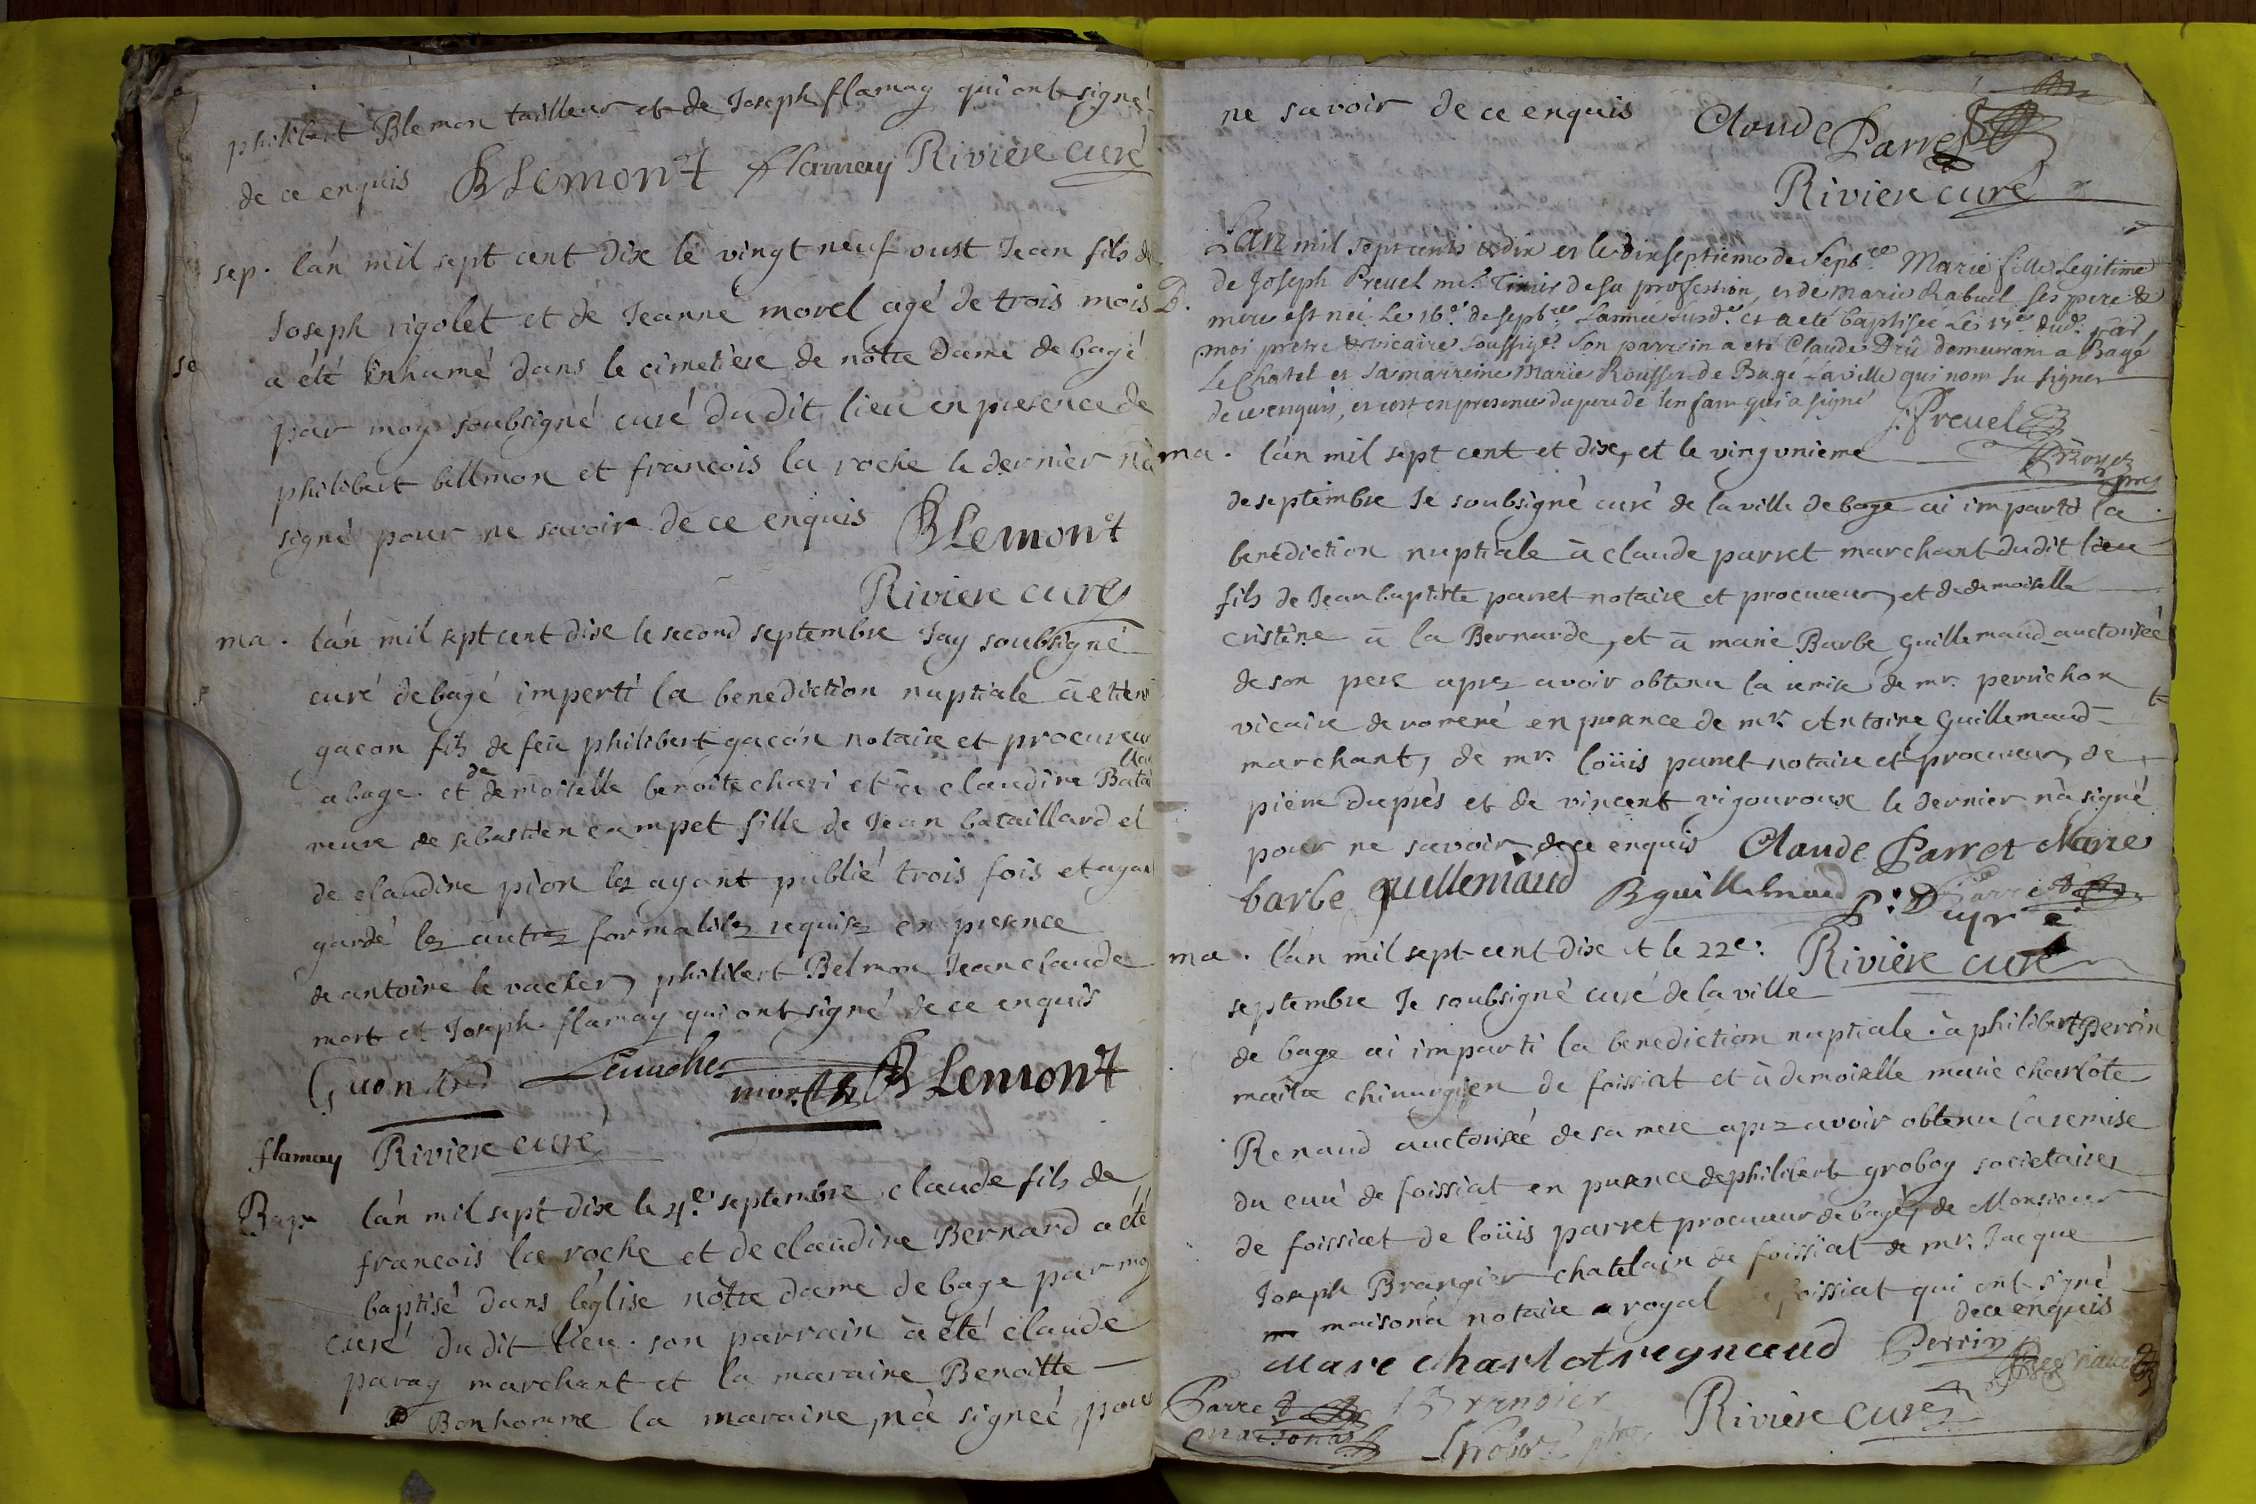 philibert Blemon tailleur et de Joseph flamay qui ont signé
de ce enquis BLemont flamay Riviere curé
sep. lan mil sept cent dix le vingt neuf oust Jean fils de
Joseph rigolet et de Jeanne morel agé de trois mois
a été Enhumé dans le cimetière de nôtre dame de bagé
par moy soubsigné curé du dit lieu en presence de
philibert bellmon et francois la roche le dernier nà
signé pour ne savoir de ce enquis BLemont
Riviere curé
ma. lan mil sept cent dix le second septembre Jay soubsigné
curé de bagé imperti la benediction nuptiale à etiene
gacon fils de feu philibert gacon notaire et procureur
a bage et de demoiselle benoite chari et à claudine Batai
llar
veuve de sebastien campet fille de Jean bataillard et
de claudine pion les ayant publié trois fois et ayant
gardé les autres formalites requises en presence
de antoine le vacher, philibert Belmon Jean claude
mort et Joseph flamay qui ont signé de ce enquis
Levacher mort BLemont
flamay Riviere curé
Bap. lan mil sept dix le 4e. septembre claude fils de
francois la roche et de claudine Bernard a été
baptisé dans léglise nôtre dame de bage par moy
curé du dit lieu. son parrain à été claude
paray marchant et la maraine Benoitte
Bonhomme la maraine nà signeé pour
ne savoir de ce enquis Claude Parret
Riviere curé
Lan mil sept cents et dix et le dixseptieme de Septbre Marie fille Legitime
de Joseph Prevel de sa profession, et de Marie Rabuel ses pere &
D. mere est née Le 16e. de septbre Lannée susde. et a eté baptisée Les 17e. dud. Par
moi pretre & vicaire soussigé. Son parrein a eté Claude Drû demeurant a Bagé
Le Chatel et Sa marreine Marie Rousset de Bagé La ville qui nont su signer
de ce enquis, et cest en presence du pere de lenfant qui a signé
J. Prevel
ma. lan mil sept cent et dix, et le vingunieme
de septembre Je soubsigné curé de la ville de bage ai imparti la
benediction nuptiale à claude parret marchant du dit lieu
fils de Jean baptiste parret notaire et procureur, et de demoiselle
cristine à la Bernarde, et à marie Barbe guillemaud auctorisée
de son pere apres avoir obtenu la remise de mr. perrichon
vicaire de romené en presance de mr. Antoine guillemaud
marchant, de mr. loüis parret notaire et procureur, de
pierre duprès et de vincent vigouroux le dernier nà signé
pour ne savoir de ce enquis Claude Parret Marie
barbe guillemaud Bguillemaud Parret P. Dupré
ma. lan mil sept cent dix et le 22e. Riviere curé
septembre Je soubsigné curé de la ville
de bage ai imparti la benediction nuptiale à philibert Perrin
maitre chirurgien de foissiat et à demoiselle marie charlote
Renaud auctorisée de sa mere apres avoir obtenu la remise
du curé de foissiat en presance de philibert groboy societaire
de foissiat de loüis parret procureur de bagé, de Monsieur
Joseph Brangier chatelain de foissiat de mr. Jacque
maisona notaire royal foissiat qui ont signé
de ce enquis
Marie Charlot regnaud Perrin Regnaud
Parret Brangier Riviere curé
maisona